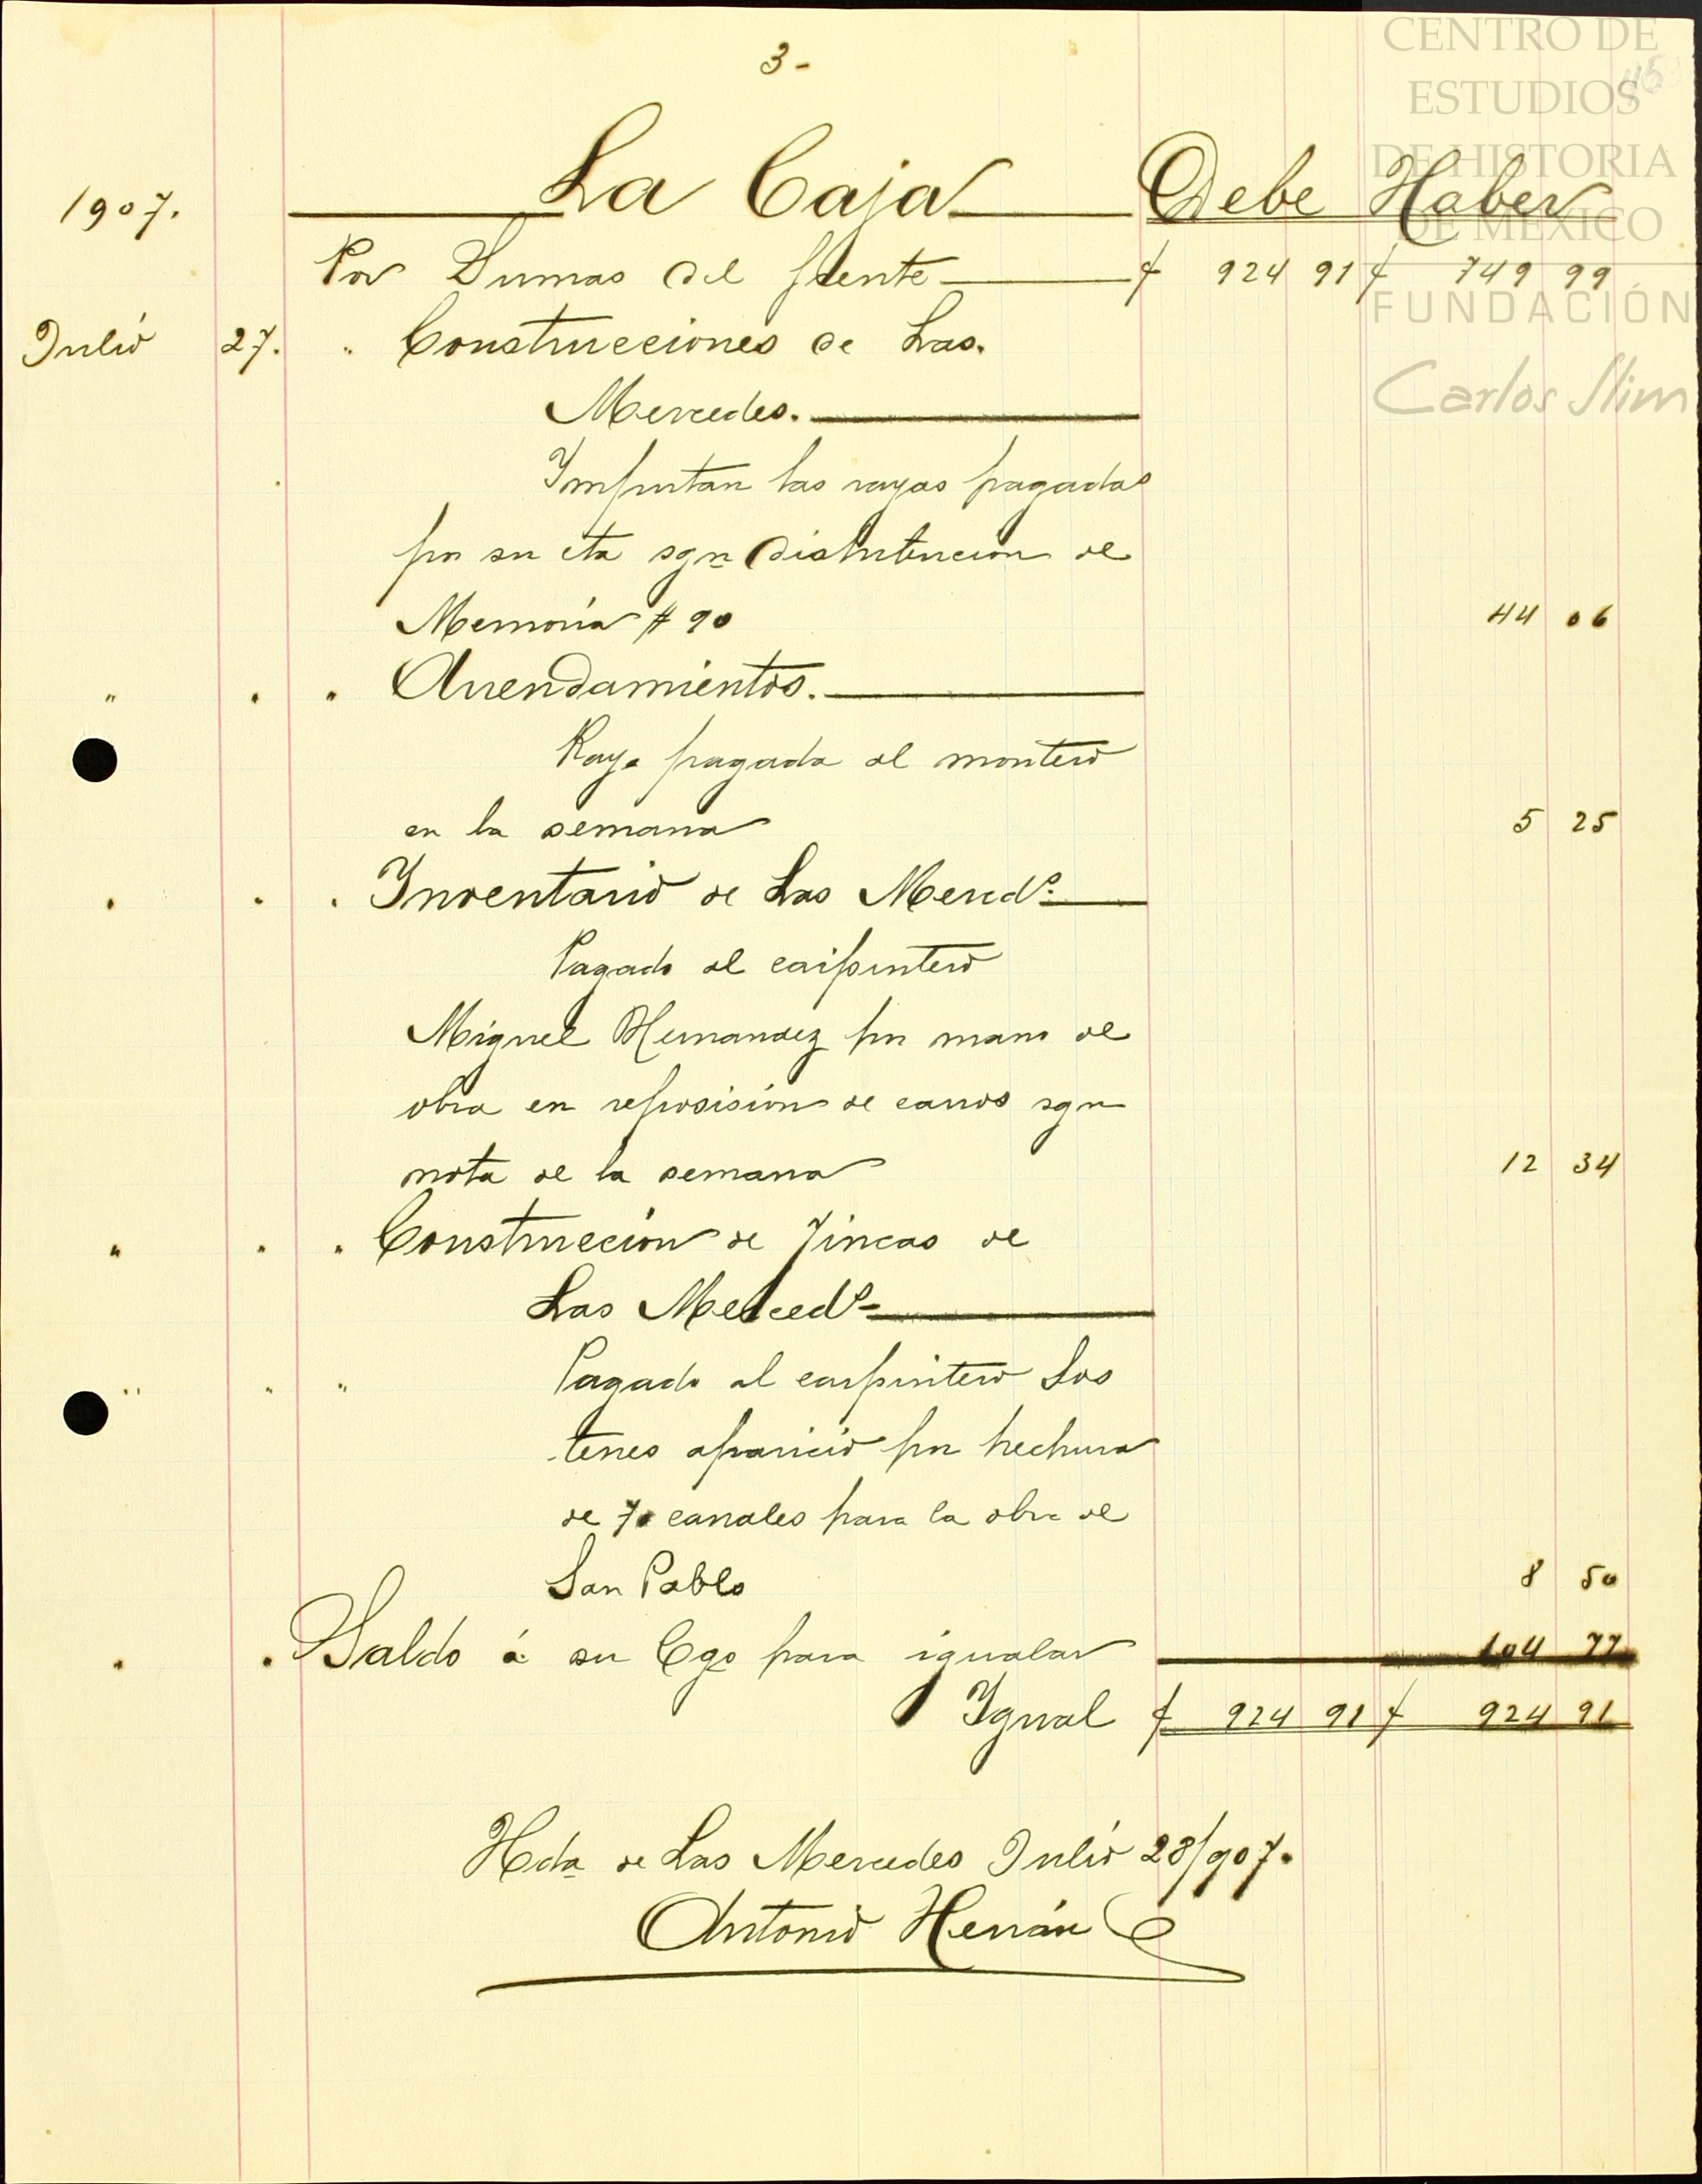 3-
CENTRO DE
ESTUDIOS
DE HISTORIA
DE MÉXICO
FUNDACIÓN
Carlos Slim
115
1907. La Caja Debe Haber
Por Sumas del frente $ 924 91 $ 749 99
Julio 27. " Construcciones de Las.
Mercedes.
Importan las rayas pagadas
por su cta sgn distribucion de
Memoria # 90 44 06
" " " Arrendamientos.
Raya pagada al montero
en la semana 5 25
" " " Inventario de Las Merceds
Pagado al carpintero
Miguel Hernandez por mano de
obra en reposision de carros sgn
nota de la semana 12 34
" " " Construccion de Fincas de
Las Merceds
" " " Pagado al carpintero Sos
tenes aparicio por hechura
de 70 canales para la obra de
San Pablo 8 50
" " Saldo á su Cgo para igualar 104 77
Igual $ 924 91 $ 924 91
Hda de Las Mercedes Julio 28/907.
Antonio Herrán